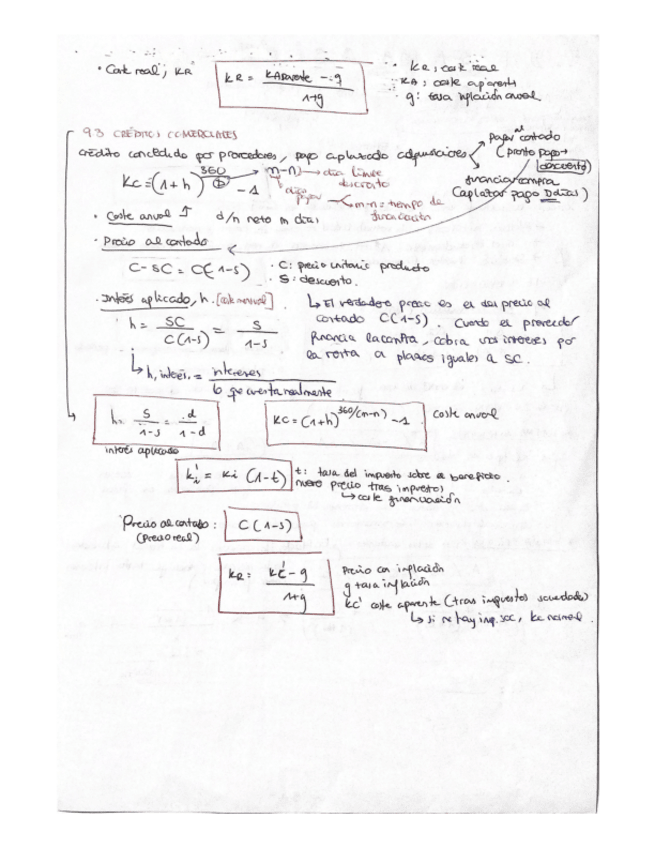 · Coste real; KR
KR = KAparente - g / 1+g
· KR; coste real
· KA; coste aparente
· g: tasa inflación anual
9.3 CRÉDITOS COMERCIALES
crédito concedido por proveedores, pago aplazado adquisiciones
pagar al contado
(pronto pago →
descuento)
financiar compra
(aplazar pago D días)
KC = (1+h)^360/D - 1
m-n → día límite
descuento
días
m-n = tiempo de
financiación
· Coste anual ↑ d/n neto m días
· Precio al contado
C - SC = C(1-S)
· C: precio unitario producto
· S: descuento.
· Interés aplicado, h. [coste mensual]
h = SC / C(1-S) = S / 1-S
↳ El verdadero precio es el del precio al
contado C(1-S). Cuando el proveedor
financia la compra, cobra unos intereses por
la venta a plazos iguales a SC.
↳ h, interés. = intereses / lo que cuesta realmente
h = S / 1-S = d / 1-d
interés aplicado
KC = (1+h)^360/(m-n) - 1
coste anual
k'i = ki (1-t)
t: tasa del impuesto sobre el beneficio.
nuevo precio tras impuestos
↳ coste financiación
Precio al contado:
(Precio real)
C (1-S)
KR = KC' - g / 1+g
Precio con inflación
g tasa inflación
KC' coste aparente (tras impuestos sociedades)
↳ si no hay imp. soc, kc normal.